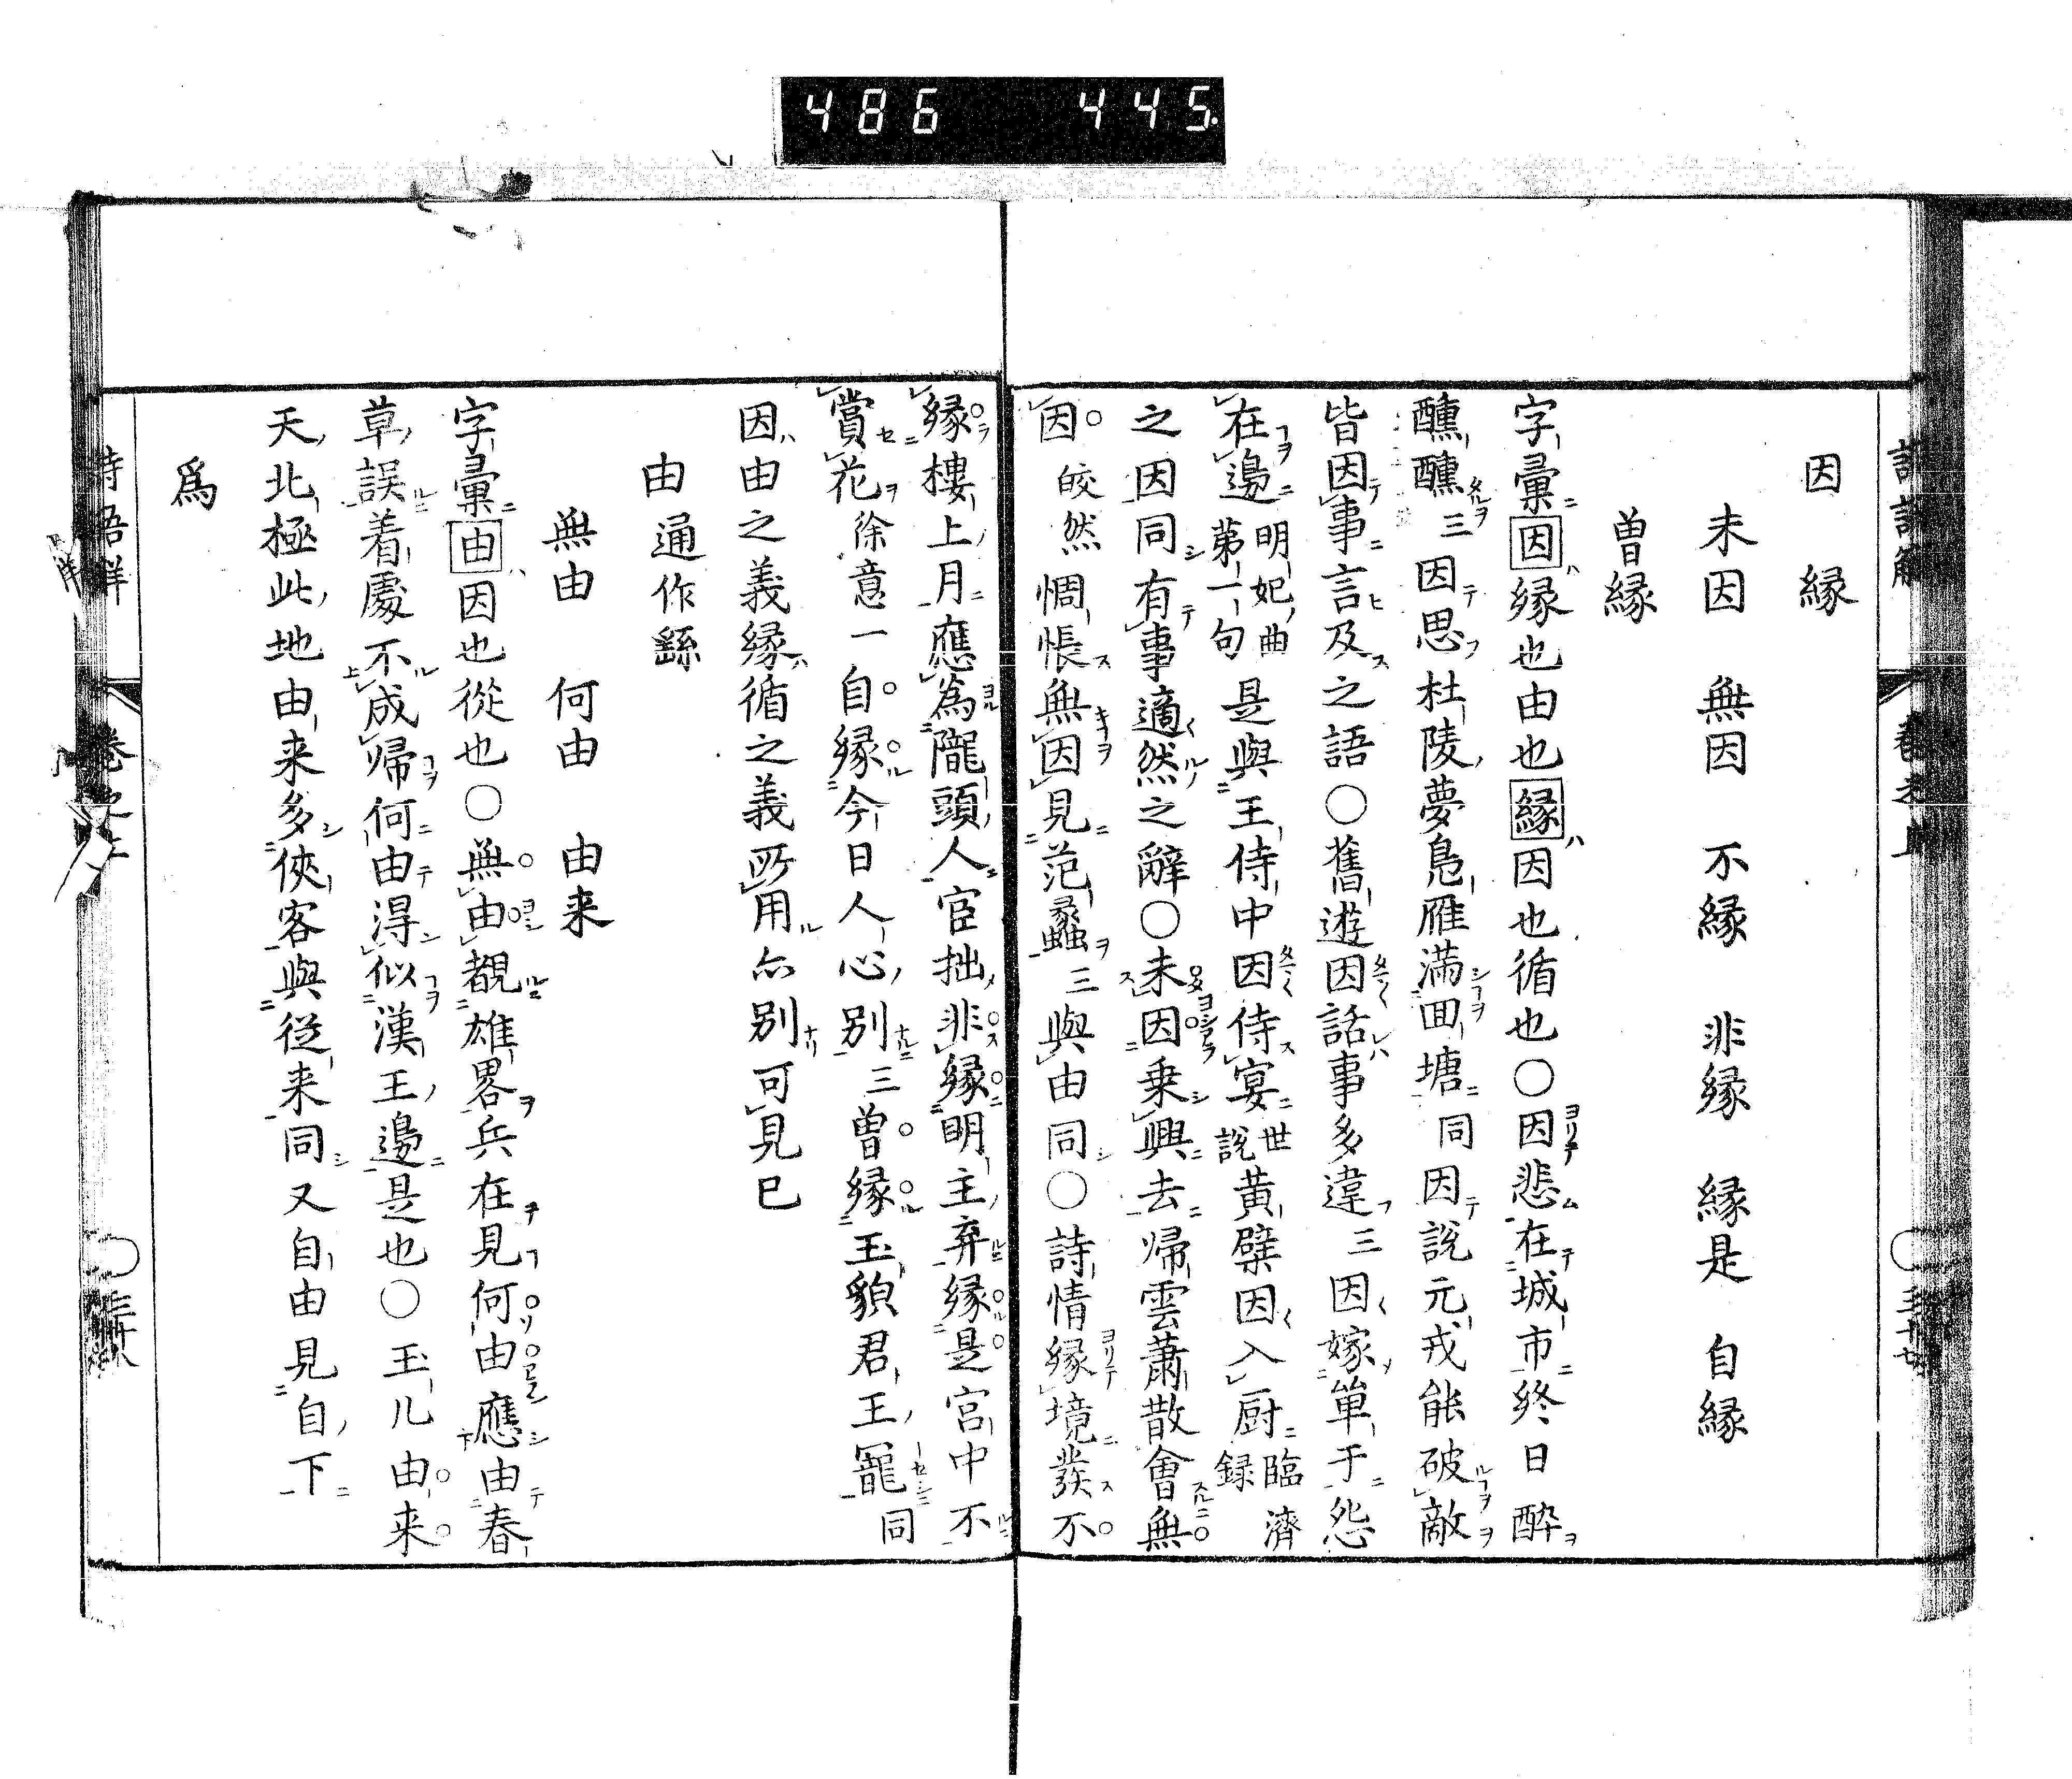 486 445.
因 縁
未因 無因 不縁 非縁 縁是 自縁
曽縁
字彙因縁也由也縁因也循也〇因悲在城市終日酔
醺醺三因思杜陵夢鳧雁満囬塘同因說元戎能破敵
皆因事言及之語〇舊遊因話事多違三因嫁単于怨
在邊明妃曲第一句是與王侍中因侍宴世說黄檗因入厨臨濟録
之因同有事適然之辭〇未因乗興去帰雲蕭散會無
因皎然惆悵無因見范蠡三與由同〇詩情縁境發不
縁樓上月應為隴頭人宦拙非縁明主弃縁是宮中不
賞花徐意一自縁今日人心別三曽縁玉貌君王寵同
因由之義縁循之義所用亦別可見已
由通作繇
無由 何由 由来
字彙由因也從也〇無由覩雄畧兵在見何由應由春
草誤着處不成帰何由淂似漢王邉是也〇玉儿由来
天北極此地由来多俠客與従来同又自由見自下
爲
詩語解 巻之上 三十七
詩語解 巻之上 三十八